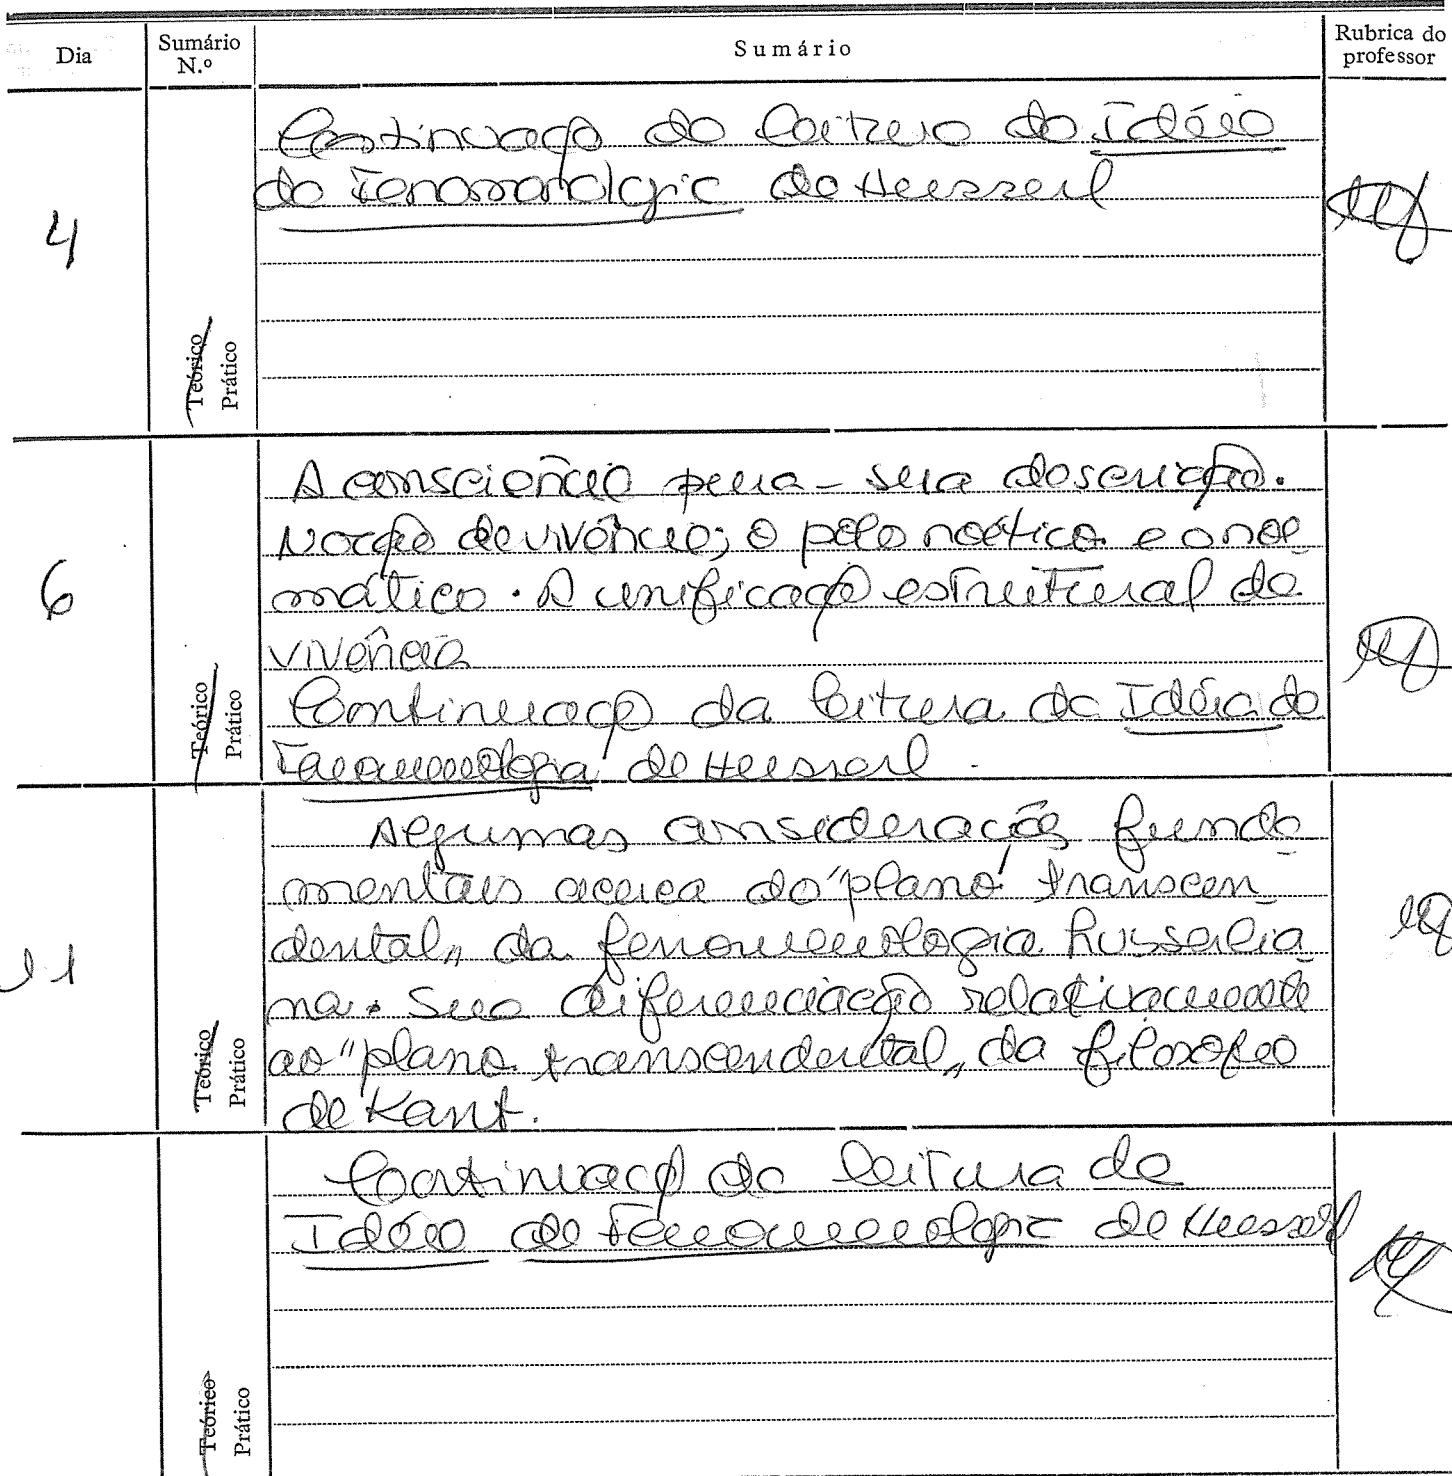 Dia Sumário N.º Sumário Rubrica do professor
4
Continuação da leitura da Idéia
da Fenomenologia de Husserl
Teórico
Prático
6
A consciência pura - sua descrição.
Noção de vivência; o pólo noético e o noe-
mático. A unificação estrutural da
vivência
Continuação da leitura da Idéia da
Fenomenologia de Husserl.
Teórico
Prático
11
Algumas considerações funda-
mentais acerca do "plano transcen-
dental" da fenomenologia husserlia-
na. Sua diferenciação relativamente
ao "plano transcendental" da filosofia
de Kant.
Teórico
Prático
Continuação da leitura da
Idéia da Fenomenologia de Husserl
Teórico
Prático